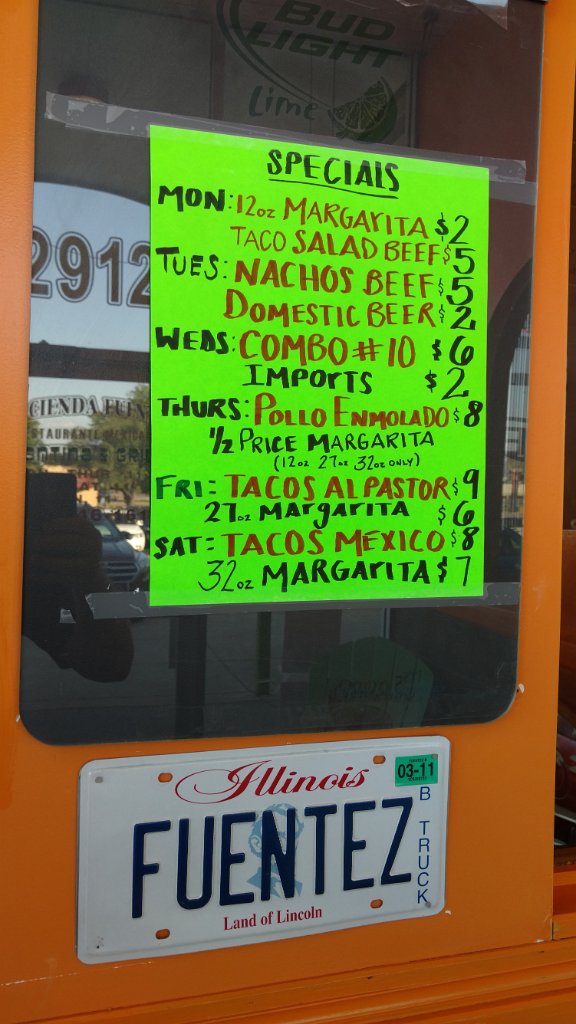 BUD
LIGHT
Lime
SPECIALS
MON: 12oz MARGARITA $2
TACO SALAD BEEF $5
TUES: NACHOS BEEF $5
DOMESTIC BEER $2
WEDS: COMBO #10 $6
IMPORTS $2
THURS: POLLO ENMOLADO $8
1/2 PRICE MARGARITA
(12oz 27oz 32oz ONLY)
FRI: TACOS AL PASTOR $9
27oz MARGARITA $6
SAT: TACOS MEXICO $8
32oz MARGARITA $7
2912
Illinois
03-11
FUENTEZ
B TRUCK
Land of Lincoln